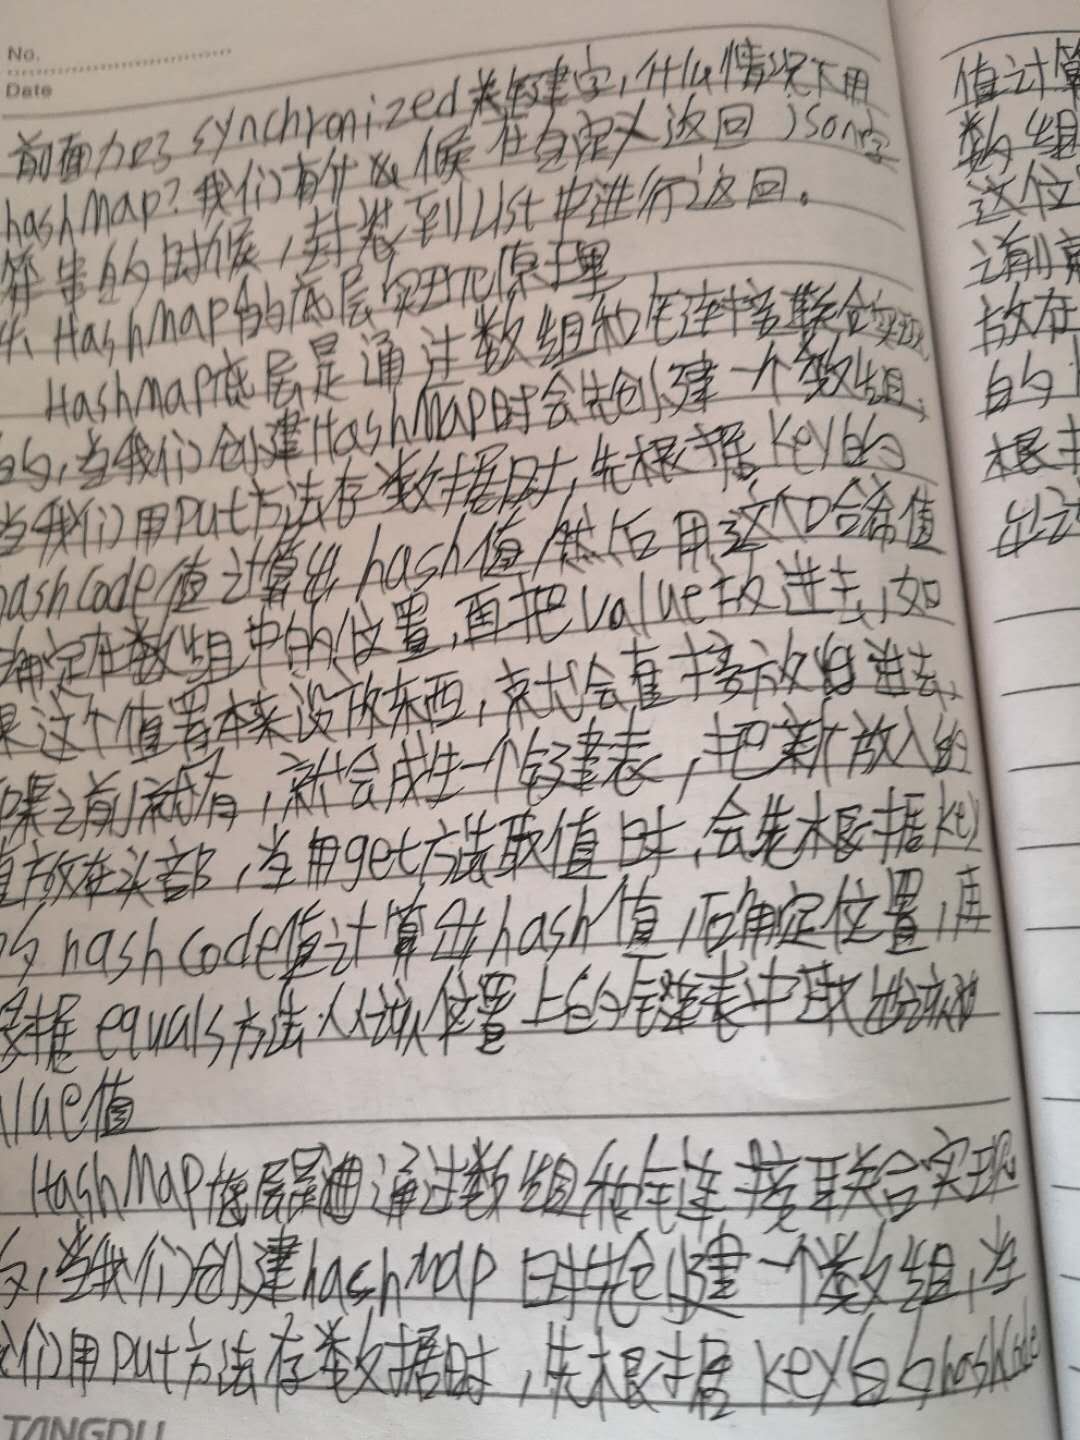 No.
Date
前面加了synchronized关键字,什么情况下用
hashMap?我们有什么候在自定义返回json字
符串的时候,封装到List中进行返回。
HashMap的底层实现原理
HashMap底层是通过数组和链接联合实现
的,当我们创建HashMap时会先创建一个数组,
当我们用put方法存数据时,先根据key的
hashCode值计算出hash值,然后用这个哈希值
确定在数组中的位置,再把value放进去,如
果这个位置本来没放东西,就会直接放进去,
如果之前就有,就会成生一个链表,把新放入的
值放在头部,当用get方法取值时,会先根据key
的hashCode值计算出hash值,后确定位置,再
根据equals方法从该位置上的链表中取出该
value值
HashMap底层是通过数组和链接联合实现
的,当我们创建hashMap时先创建一个数组,当
我们用put方法存数据时,先根据key的hashCode
TANGDU
值计算
数组
这位
之前就
放在
的
根据
出该